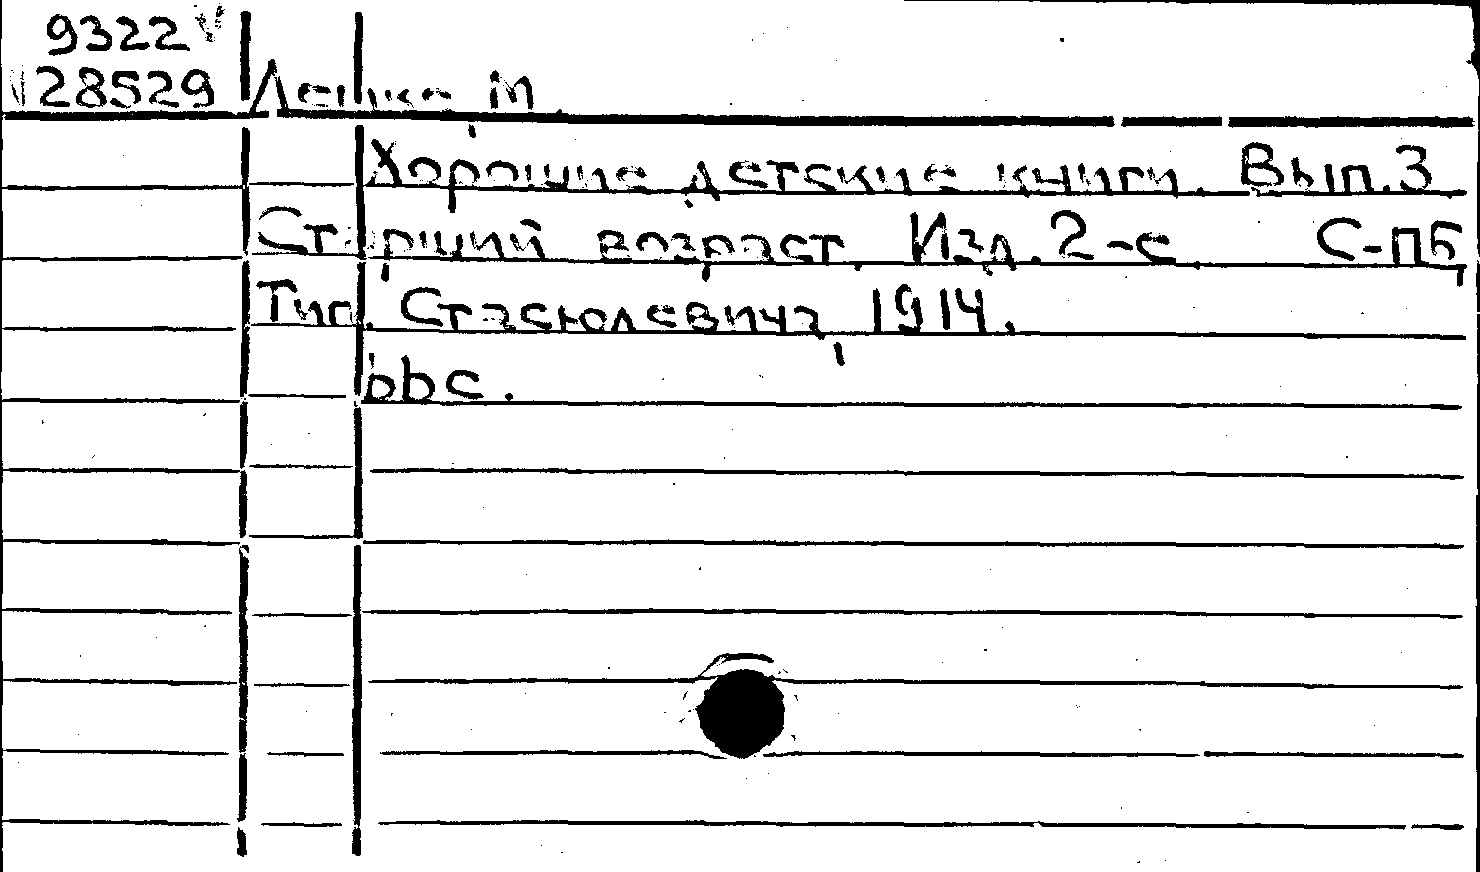 9322
28529 Лемке, М.
Хорошие детские книги. Вып.3
Старший возраст. Изд. 2-е. С-пб,
Тип. Стасюлевича, 1914.
66 с.